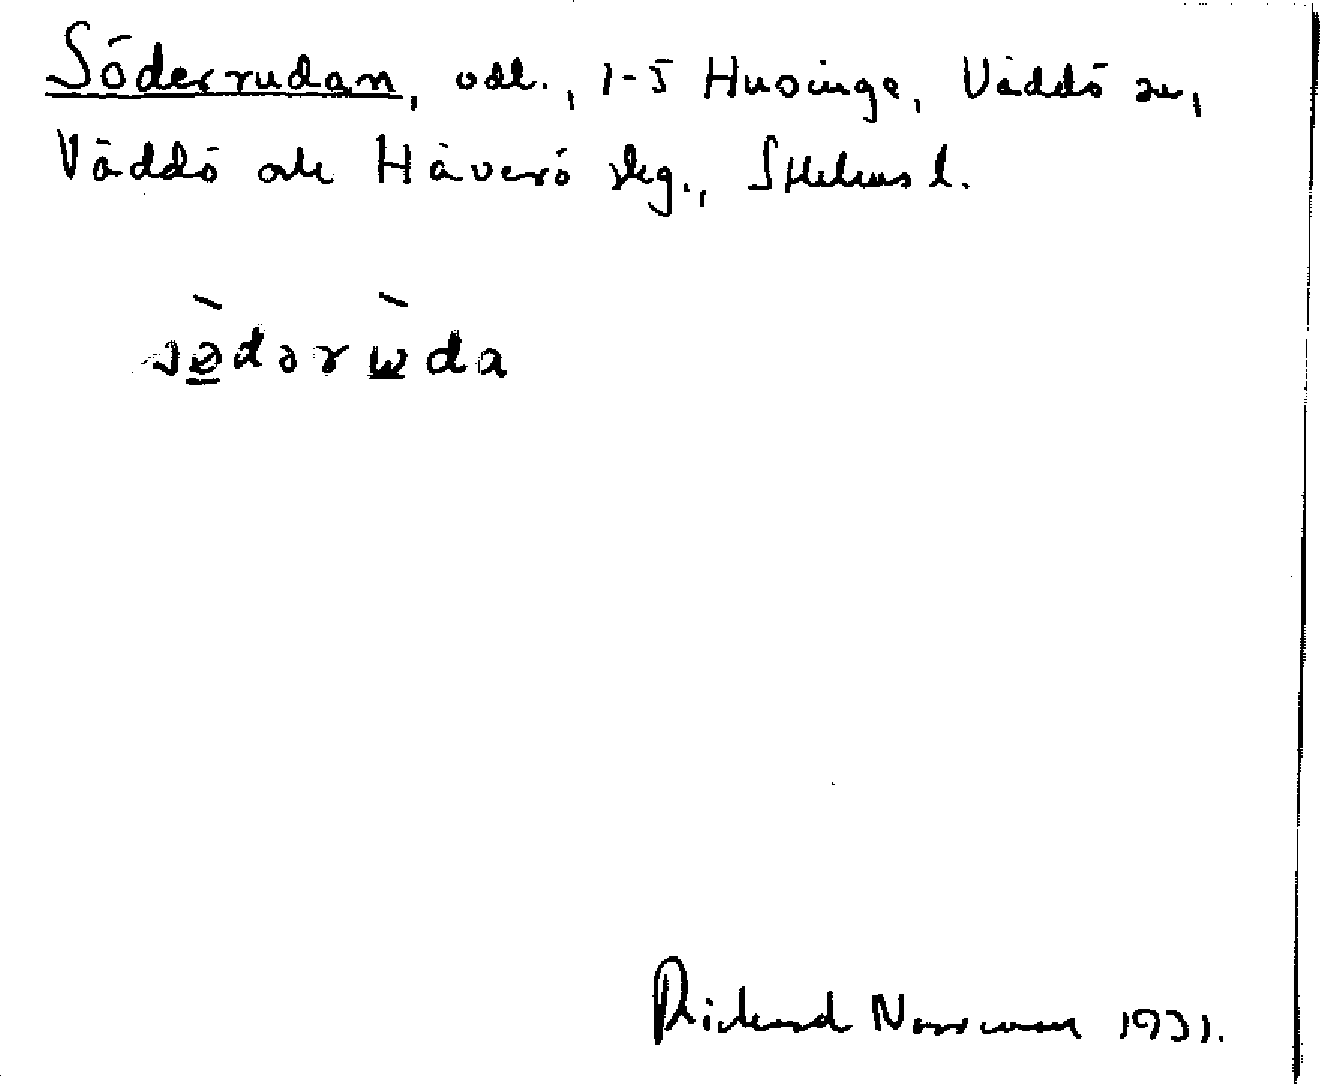 Söderrudan, odl., 1-5 Husinge, Väddö sn,
Väddö och Häverö skg., Sthlms l.
sø̀dərɯ̀da
Rickard Norrman 1931.